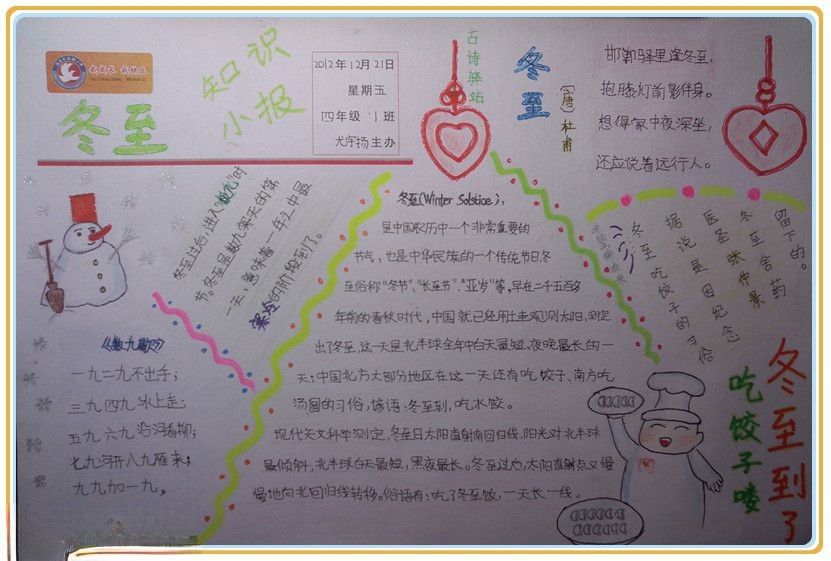 我成长 我快乐
冬至
知识
小报
2012年12月21日
星期五
四年级 1班
尤宇扬主办
古诗驿站
冬至
〔唐〕杜甫
邯郸驿里逢冬至，
抱膝灯前影伴身。
想得家中夜深坐，
还应说着远行人。
冬至过后，进入"数九"时
节。冬至是数九寒天的第
一天，意味着一年之中最
寒冷的阶段到了。
《数九歌》
一九二九不出手；
三九四九冰上走；
五九六九沿河看柳；
七九河开八九雁来；
九九加一九。
冬至(Winter Solstice)，
是中国农历中一个非常重要的
节气，也是中华民族的一个传统节日，冬
至俗称"冬节"、"长至节"、"亚岁"等，早在二千五百多
年前的春秋时代，中国就已经用土圭观测太阳，测定
出了冬至，这一天是北半球全年中白天最短、夜晚最长的一
天；中国北方大部分地区在这一天还有吃饺子、南方吃
汤圆的习俗，谚语：冬至到，吃水饺。
现代天文科学测定，冬至日太阳直射南回归线，阳光对北半球
最倾斜，北半球白天最短，黑夜最长。冬至过后，太阳直射点又慢
慢地向北回归线转移。俗语有：吃了冬至饭，一天长一线。
冬至吃饺子的习俗
据说是因纪念
医圣张仲景
冬至舍药
留下的。
冬至到了
吃饺子喽